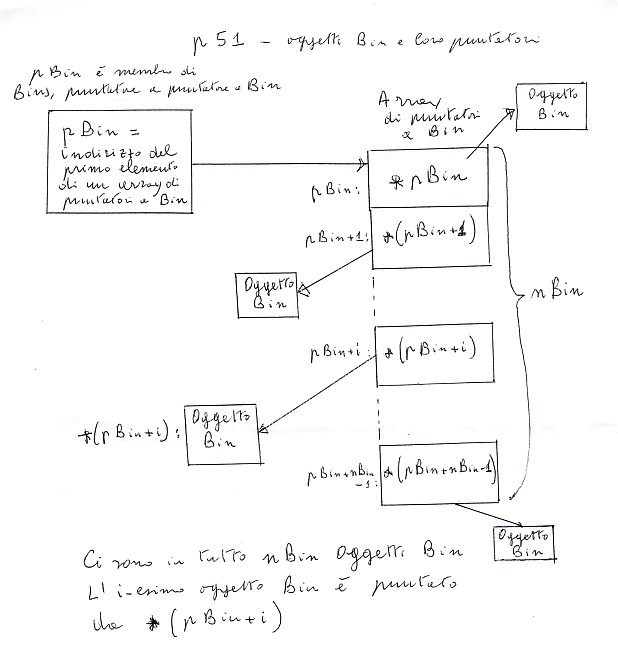 p 51 - oggetti Bin e loro puntatori
pBin è membro di
Bins, puntatore a puntatore a Bin
pBin =
indirizzo del
primo elemento
di un array di
puntatori a Bin
Array
di puntatori
a Bin
Oggetto
Bin
pBin:
*pBin
pBin+1:
*(pBin+1)
Oggetto
Bin
nBin
pBin+i:
*(pBin+i)
*(pBin+i):
Oggetto
Bin
pBin+nBin
-1:
*(pBin+nBin-1)
Oggetto
Bin
Ci sono in tutto nBin Oggetti Bin
L' i-esimo oggetto Bin è puntato
da *(pBin+i)